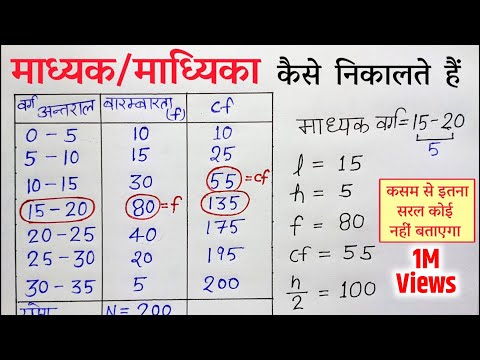 माध्यक/माध्यिका कैसे निकालते हैं
वर्ग अन्तराल बारम्बारता (f) cf
0 - 5 10 10
5 - 10 15 25
10 - 15 30 55 = cf
15 - 20 80 = f 135
20 - 25 40 175
25 - 30 20 195
30 - 35 5 200
योग N = 200
माध्यक वर्ग = 15 - 20
5
l = 15
h = 5
f = 80
cf = 55
n/2 = 100
कसम से इतना
सरल कोई
नहीं बताएगा
1M
Views